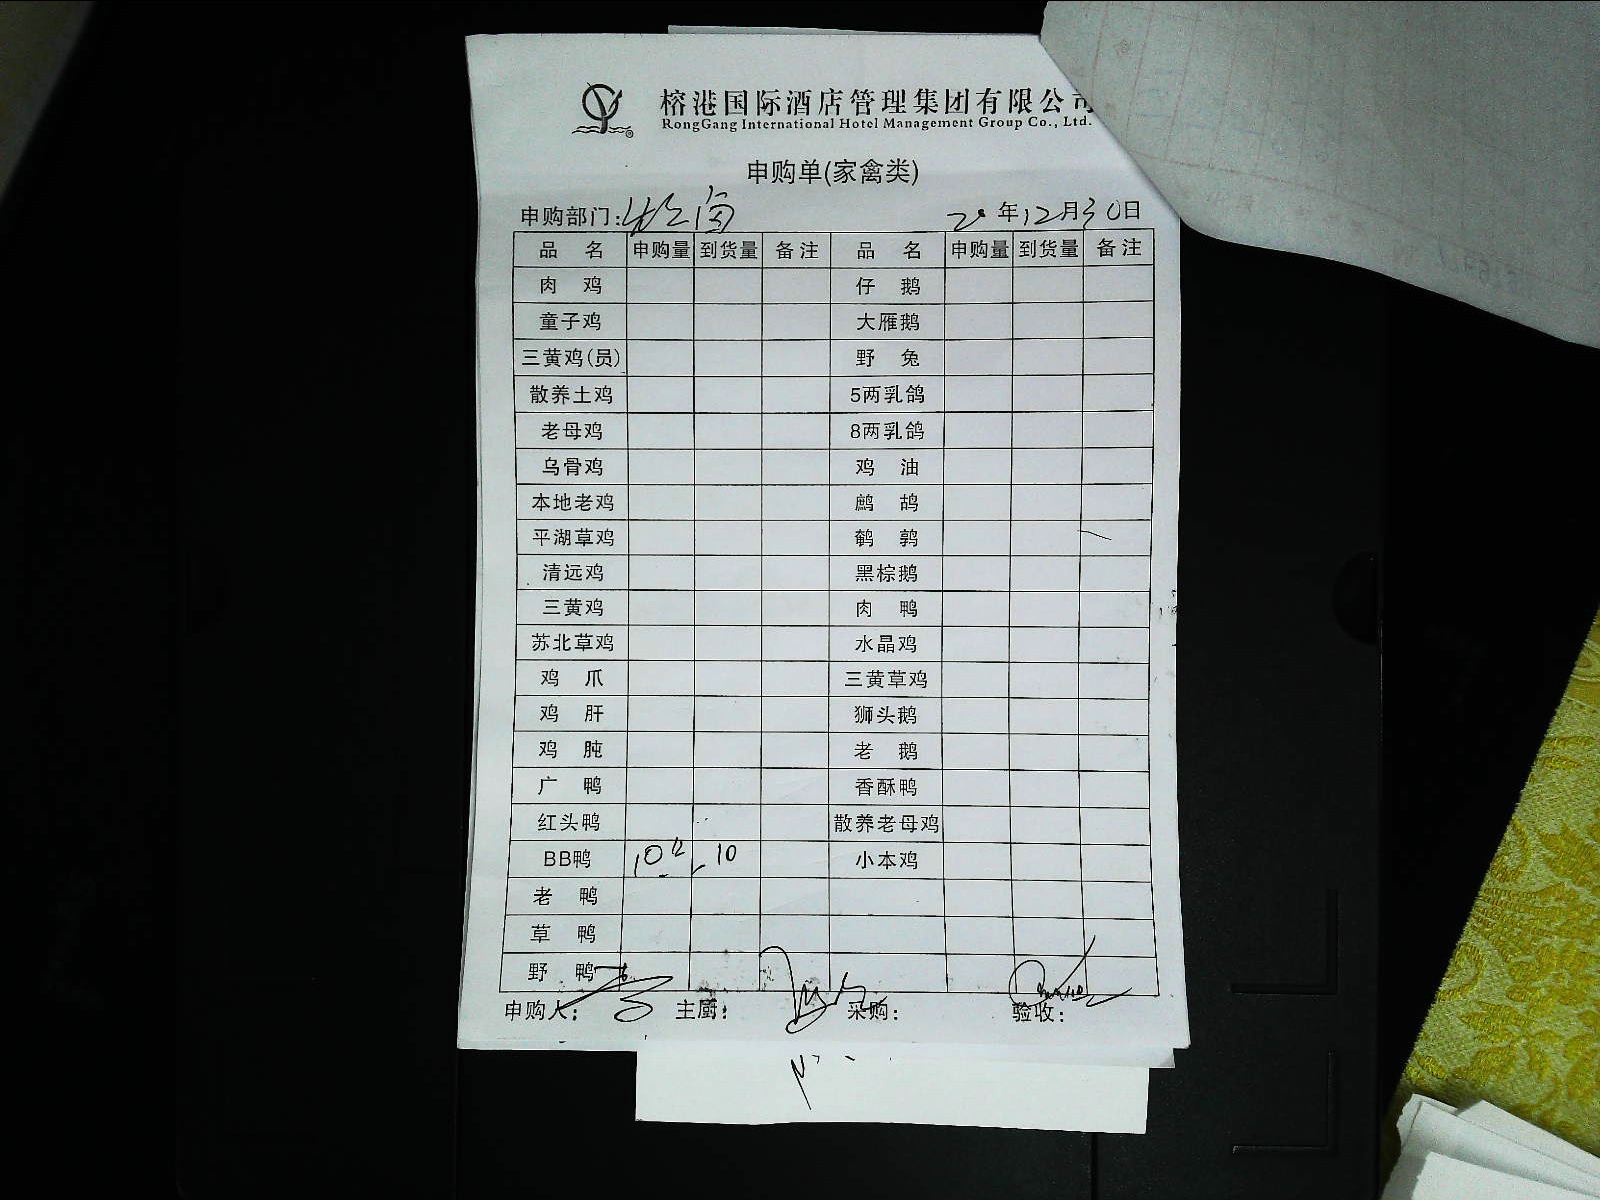 榕港国际酒店管理集团有限公司
RongGang International Hotel Management Group Co., Ltd.
申购单(家禽类)
申购部门: 20年12月30日
品名 申购量 到货量 备注 品名 申购量 到货量 备注
肉鸡 仔鹅
童子鸡 大雁鹅
三黄鸡(员) 野兔
散养土鸡 5两乳鸽
老母鸡 8两乳鸽
乌骨鸡 鸡油
本地老鸡 鹧鸪
平湖草鸡 鹌鹑
清远鸡 黑棕鹅
三黄鸡 肉鸭
苏北草鸡 水晶鸡
鸡爪 三黄草鸡
鸡肝 狮头鹅
鸡肫 老鹅
广鸭 香酥鸭
红头鸭 散养老母鸡
BB鸭 10 10 小本鸡
老鸭
草鸭
野鸭
申购人: 主厨: 采购: 验收: